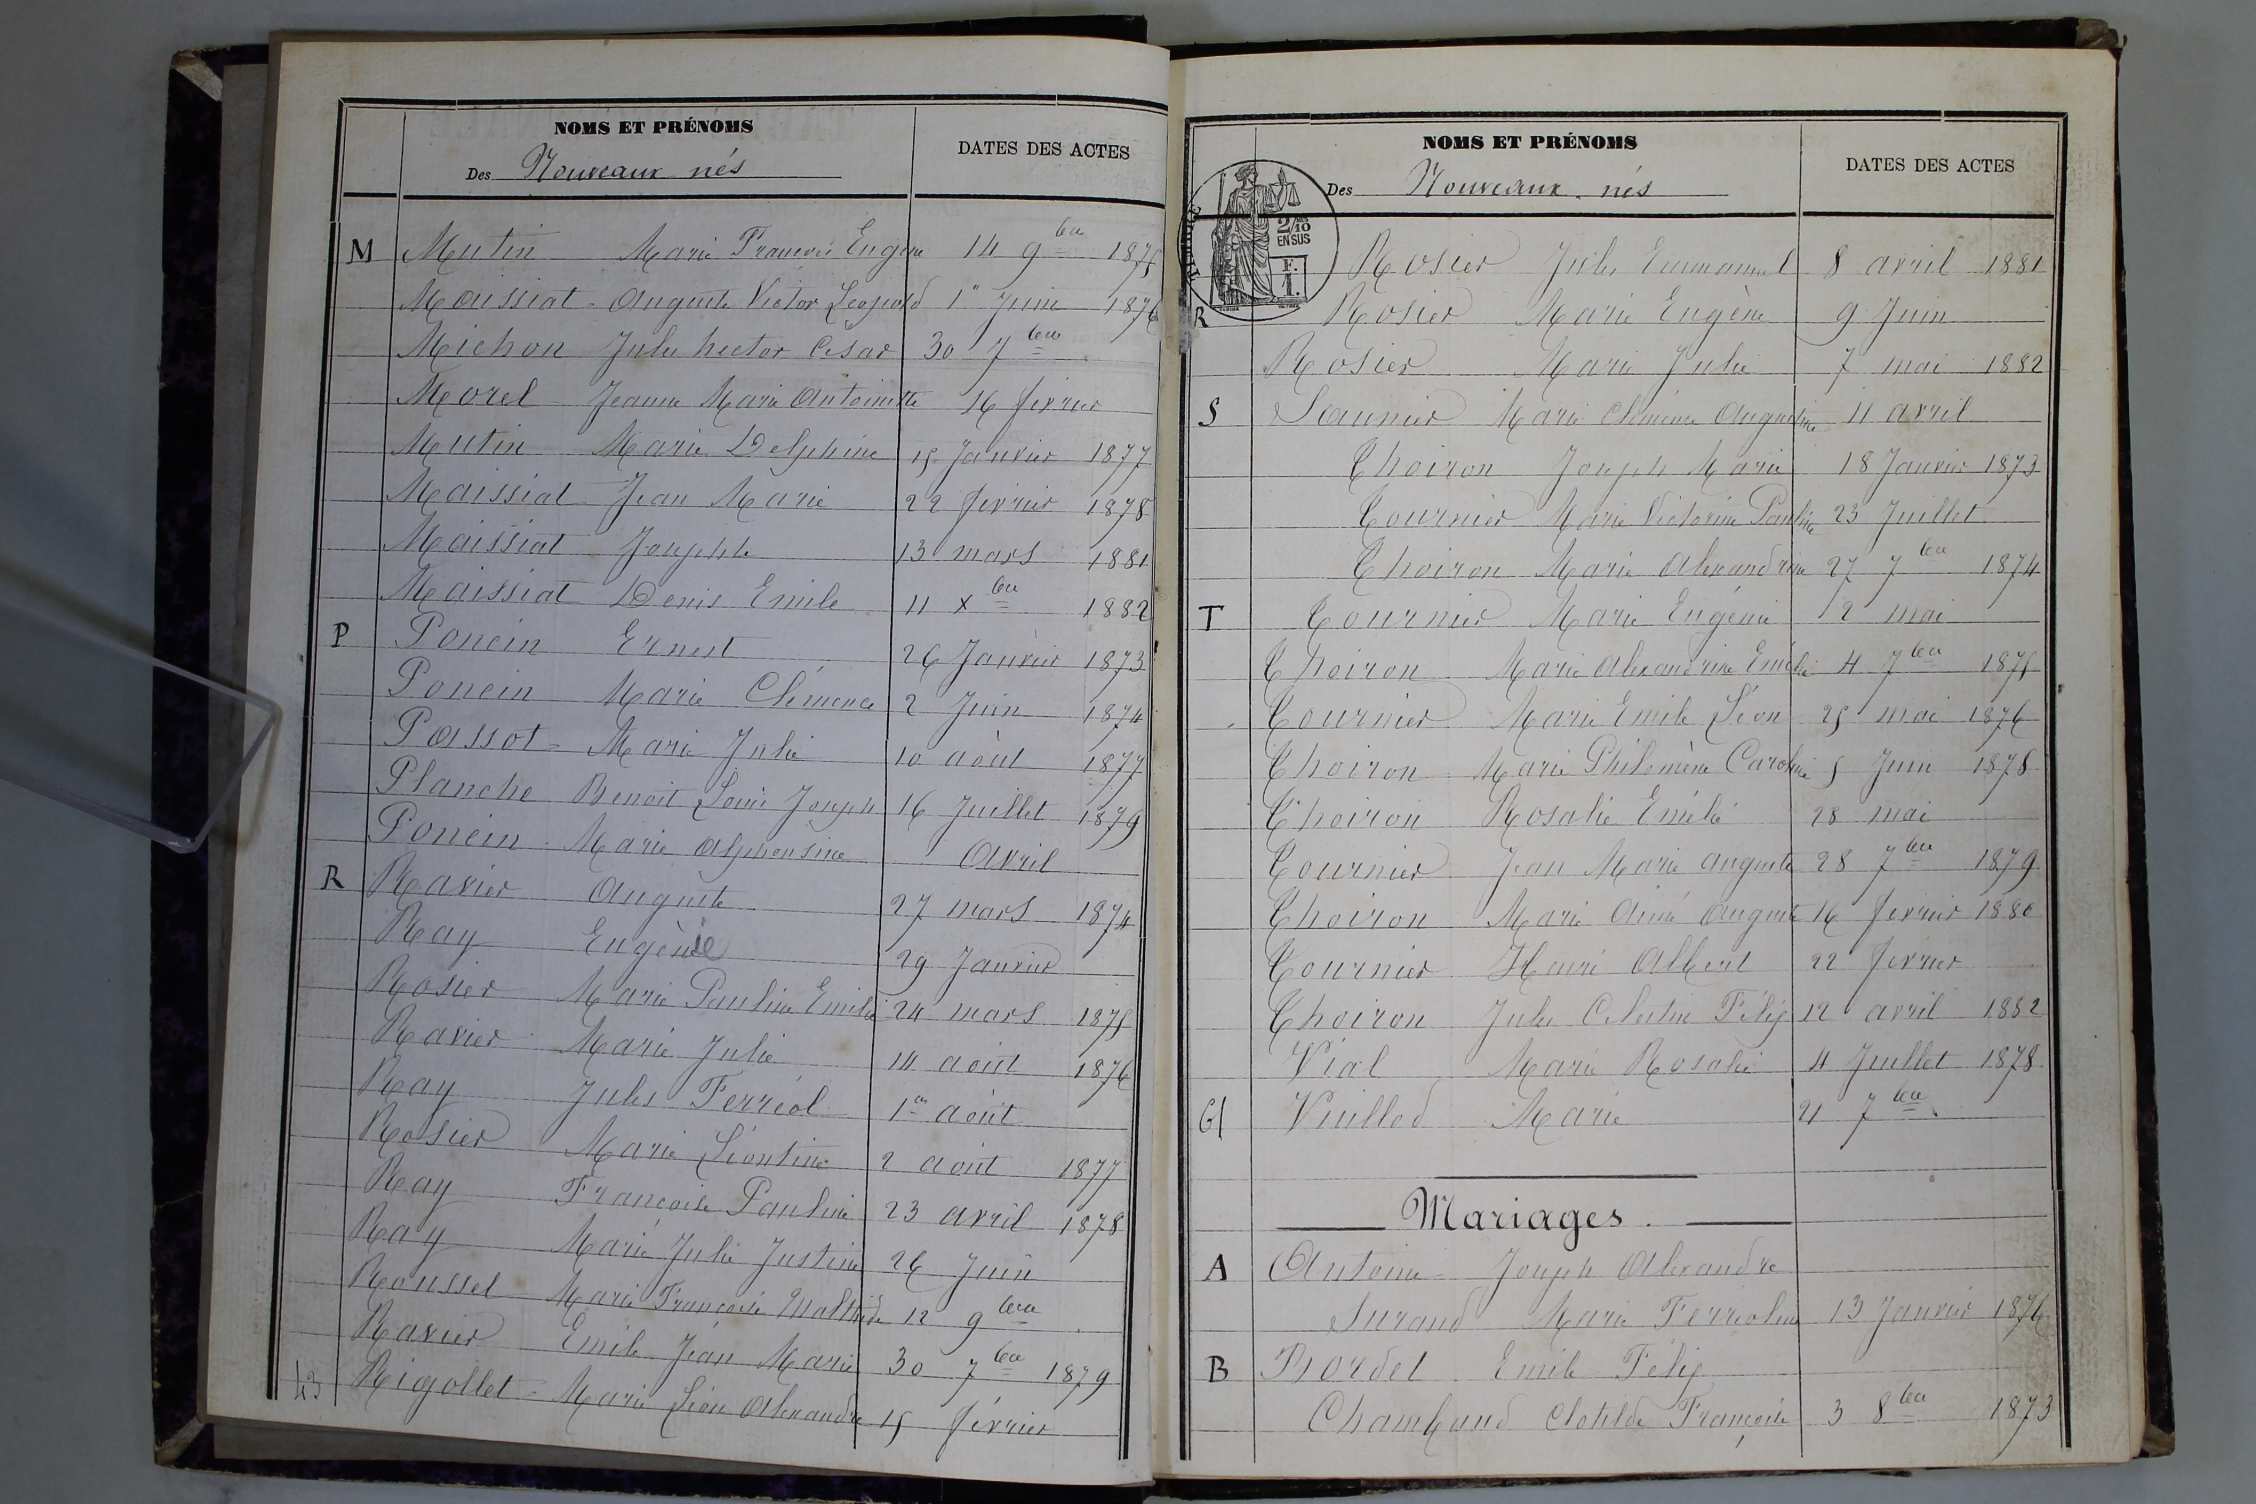 NOMS ET PRÉNOMS
DATES DES ACTES
Des Nouveaux nés
M Mutin Marie François Eugène 14 9bre 1875
Maissiat Auguste Victor Léopold 1er Juin 1876
Michon Jules hector César 30 7bre
Morel Jeanne Marie Antoinette 16 février
Mutin Marie Delphine 15 Janvier 1877
Maissiat Jean Marie 22 février 1878
Maissiat Joseph 13 mars 1881
Maissiat Denis Emile 11 xbre 1882
P Poncin Ernest 26 Janvier 1873
Poncin Marie Clémence 2 Juin 1874
Passot Marie Julie 10 août 1877
Planche Benoit Louis Joseph 16 Juillet 1879
Poncin Marie Alphonsine Avril
R Ravier Auguste 27 mars 1874
Ray Eugénie 29 Janvier
Rosier Marie Pauline Emilie 24 mars 1875
Ravier Marie Julie 14 août 1876
Ray Jules Ferréol 1er août
Rosier Marie Léontine 2 août 1877
Ray Françoise Pauline 23 avril 1878
Ray Marie Julie Justine 26 Juin
Roussel Marie Françoise Mathilde 12 9bre
Ravier Emile Jean Marie 30 7bre 1879
Rigollet Marie Léon Alexandre 15 février
NOMS ET PRÉNOMS
DATES DES ACTES
Des Nouveaux nés
2/10
EN SUS
F.
1.
Rosier Jules Emmanuel 8 avril 1881
R Rosier Marie Eugène 9 Juin
Rosier Marie Julie 7 mai 1882
S Saunier Marie Clémence Augustine 11 avril
Thoiron Joseph Marie 18 Janvier 1873
Tournier Marie Victorine Pauline 23 Juillet
Thoiron Marie Alexandrine 27 7bre 1874
T Tournier Marie Eugénie 12 mai
Thoiron Marie Alexandrine Emélie 4 7bre 1875
Tournier Marie Emile Léon 25 mai 1876
Thoiron Marie Philomène Caroline 5 Juin 1878
Thoiron Rosalie Emélie 28 mai
Tournier Jean Marie Auguste 28 7bre 1879
Thoiron Marie Aimé Auguste 16 février 1880
Tournier Henri Albert 22 février
Thoiron Jules Célestin Félix 12 avril 1882
Vial Marie Rosalie 4 Juillet 1878
Vuillod Marie 21 7bre
Mariages.
A Antoine Joseph Alexandre
Surand Marie Ferréoline 13 Janvier 1876
B Bordet Emile Félix
Chambard Clotilde Françoise 3 8bre 1873